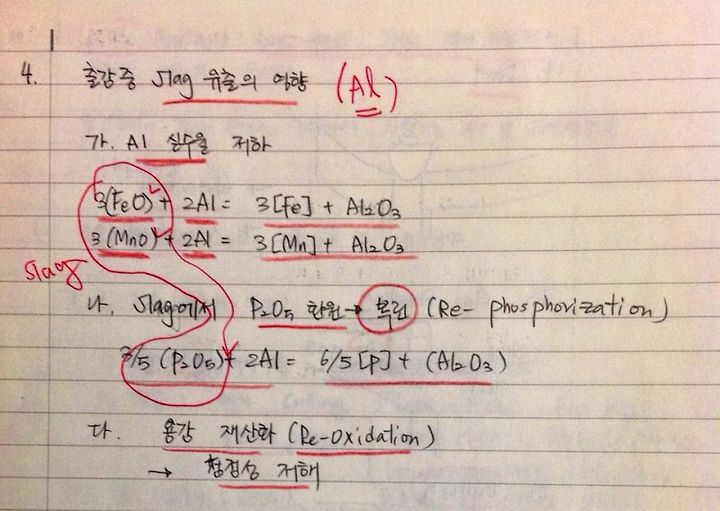 4. 출강중 slag 유출의 영향 (Al)
가. Al 실수율 저하
3(FeO) + 2Al = 3[Fe] + Al2O3
3(MnO) + 2Al = 3[Mn] + Al2O3
slag
나. slag에서 P2O5 환원 → 복린 (Re-phosphorization)
3/5 (P2O5) + 2Al = 6/5 [P] + (Al2O3)
다. 용강 재산화 (Re-Oxidation)
→ 청정성 저해